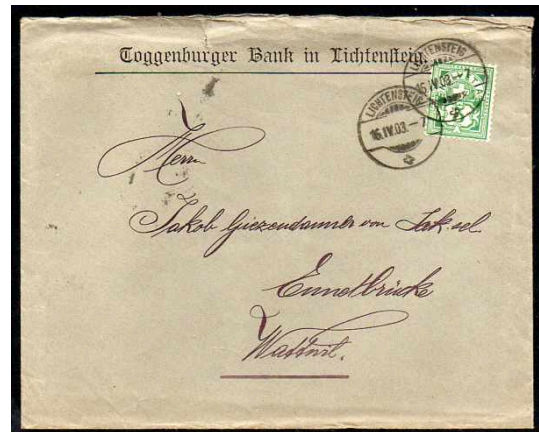 Toggenburger Bank in Lichtensteig.
LICHTENSTEIG
16.IV.03.–
LICHTENSTEIG
16.IV.03.–7
Herrn
Jakob Giezendanner von Jak. sel.
Ennetbrücke
Wattwil.